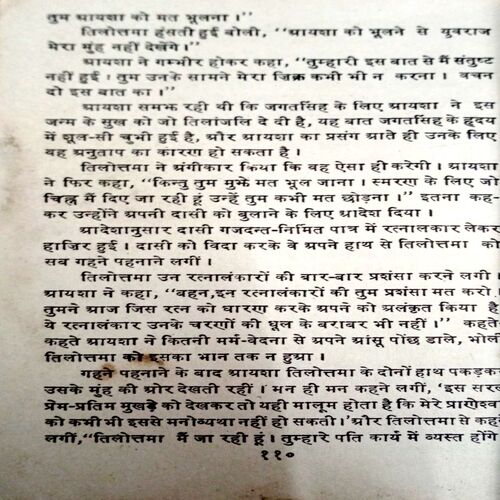 तुम आयशा को मत भूलना।”
तिलोत्तमा हंसती हुई बोली, “आयशा को भूलने से युवराज
मेरा मुंह नहीं देखेंगे।”
आयशा ने गम्भीर होकर कहा, “तुम्हारी इस बात से मैं संतुष्ट
नहीं हुई। तुम उनके सामने मेरा जिक्र कभी भी न करना। वचन
दो इस बात का।”
आयशा समझ रही थी कि जगतसिंह के लिए आयशा ने इस
जन्म के सुख को जो तिलांजलि दे दी है, यह बात जगतसिंह के हृदय
में शूल-सी चुभी हुई है, और आयशा का प्रसंग आते ही उनके लिए
वह अनुताप का कारण हो सकता है।
तिलोत्तमा ने अंगीकार किया कि वह ऐसा ही करेगी। आयशा
ने फिर कहा, “किन्तु तुम मुझे मत भूल जाना। स्मरण के लिए जो
चिह्न मैं दिए जा रही हूं उन्हें तुम कभी मत छोड़ना।” इतना कह-
कर उन्होंने अपनी दासी को बुलाने के लिए आदेश दिया।
आदेशानुसार दासी गजदन्त-निर्मित पात्र में रत्नालंकार लेकर
हाज़िर हुई। दासी को विदा करके वे अपने हाथ से तिलोत्तमा को
सब गहने पहनाने लगीं।
तिलोत्तमा उन रत्नालंकारों की बार-बार प्रशंसा करने लगी।
आयशा ने कहा, “बहन, इन रत्नालंकारों की तुम प्रशंसा मत करो।
तुमने आज जिस रत्न को धारण करके अपने को अलंकृत किया है
ये रत्नालंकार उनके चरणों की धूल के बराबर भी नहीं।” कहते
कहते आयशा ने कितनी मर्म-वेदना से अपने आंसू पोंछ डाले, भोली
तिलोत्तमा को इसका भान तक न हुआ।
गहने पहनाने के बाद आयशा तिलोत्तमा के दोनों हाथ पकड़कर
उसके मुंह की ओर देखती रहीं। मन ही मन कहने लगीं, ‘इस सर
प्रेम-प्रतिम मुखड़े को देखकर तो यही मालूम होता है कि मेरे प्राणेश्व
को कभी भी इससे मनोव्यथा नहीं हो सकती।’ और तिलोत्तमा से कह
लगीं, “तिलोत्तमा मैं जा रही हूं। तुम्हारे पति कार्य में व्यस्त होंगे
११०